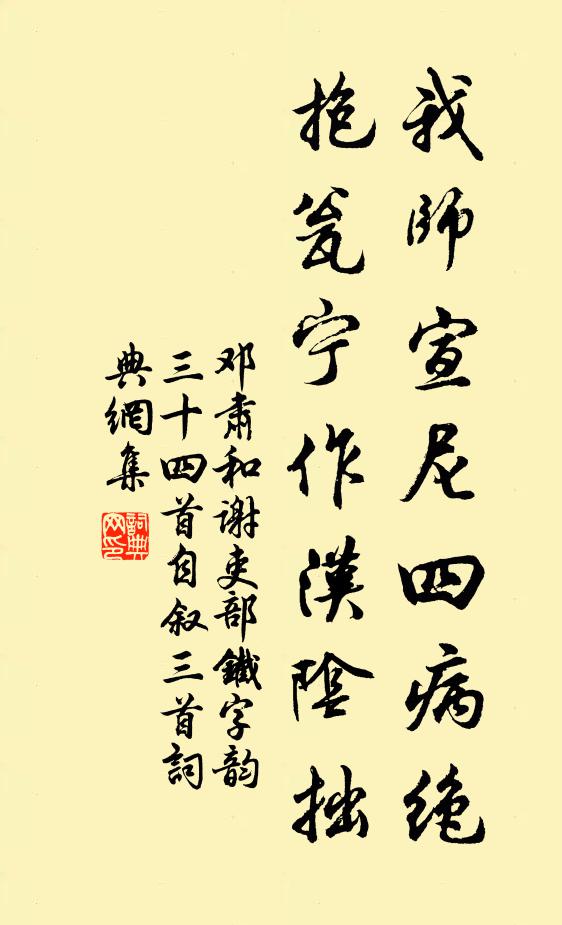 我師宣尼四病绝
抱瓮宁作漢陰拙
邓肃和谢吏部鐵字韵
三十四首自叙三首詞
典網集
詞典網印